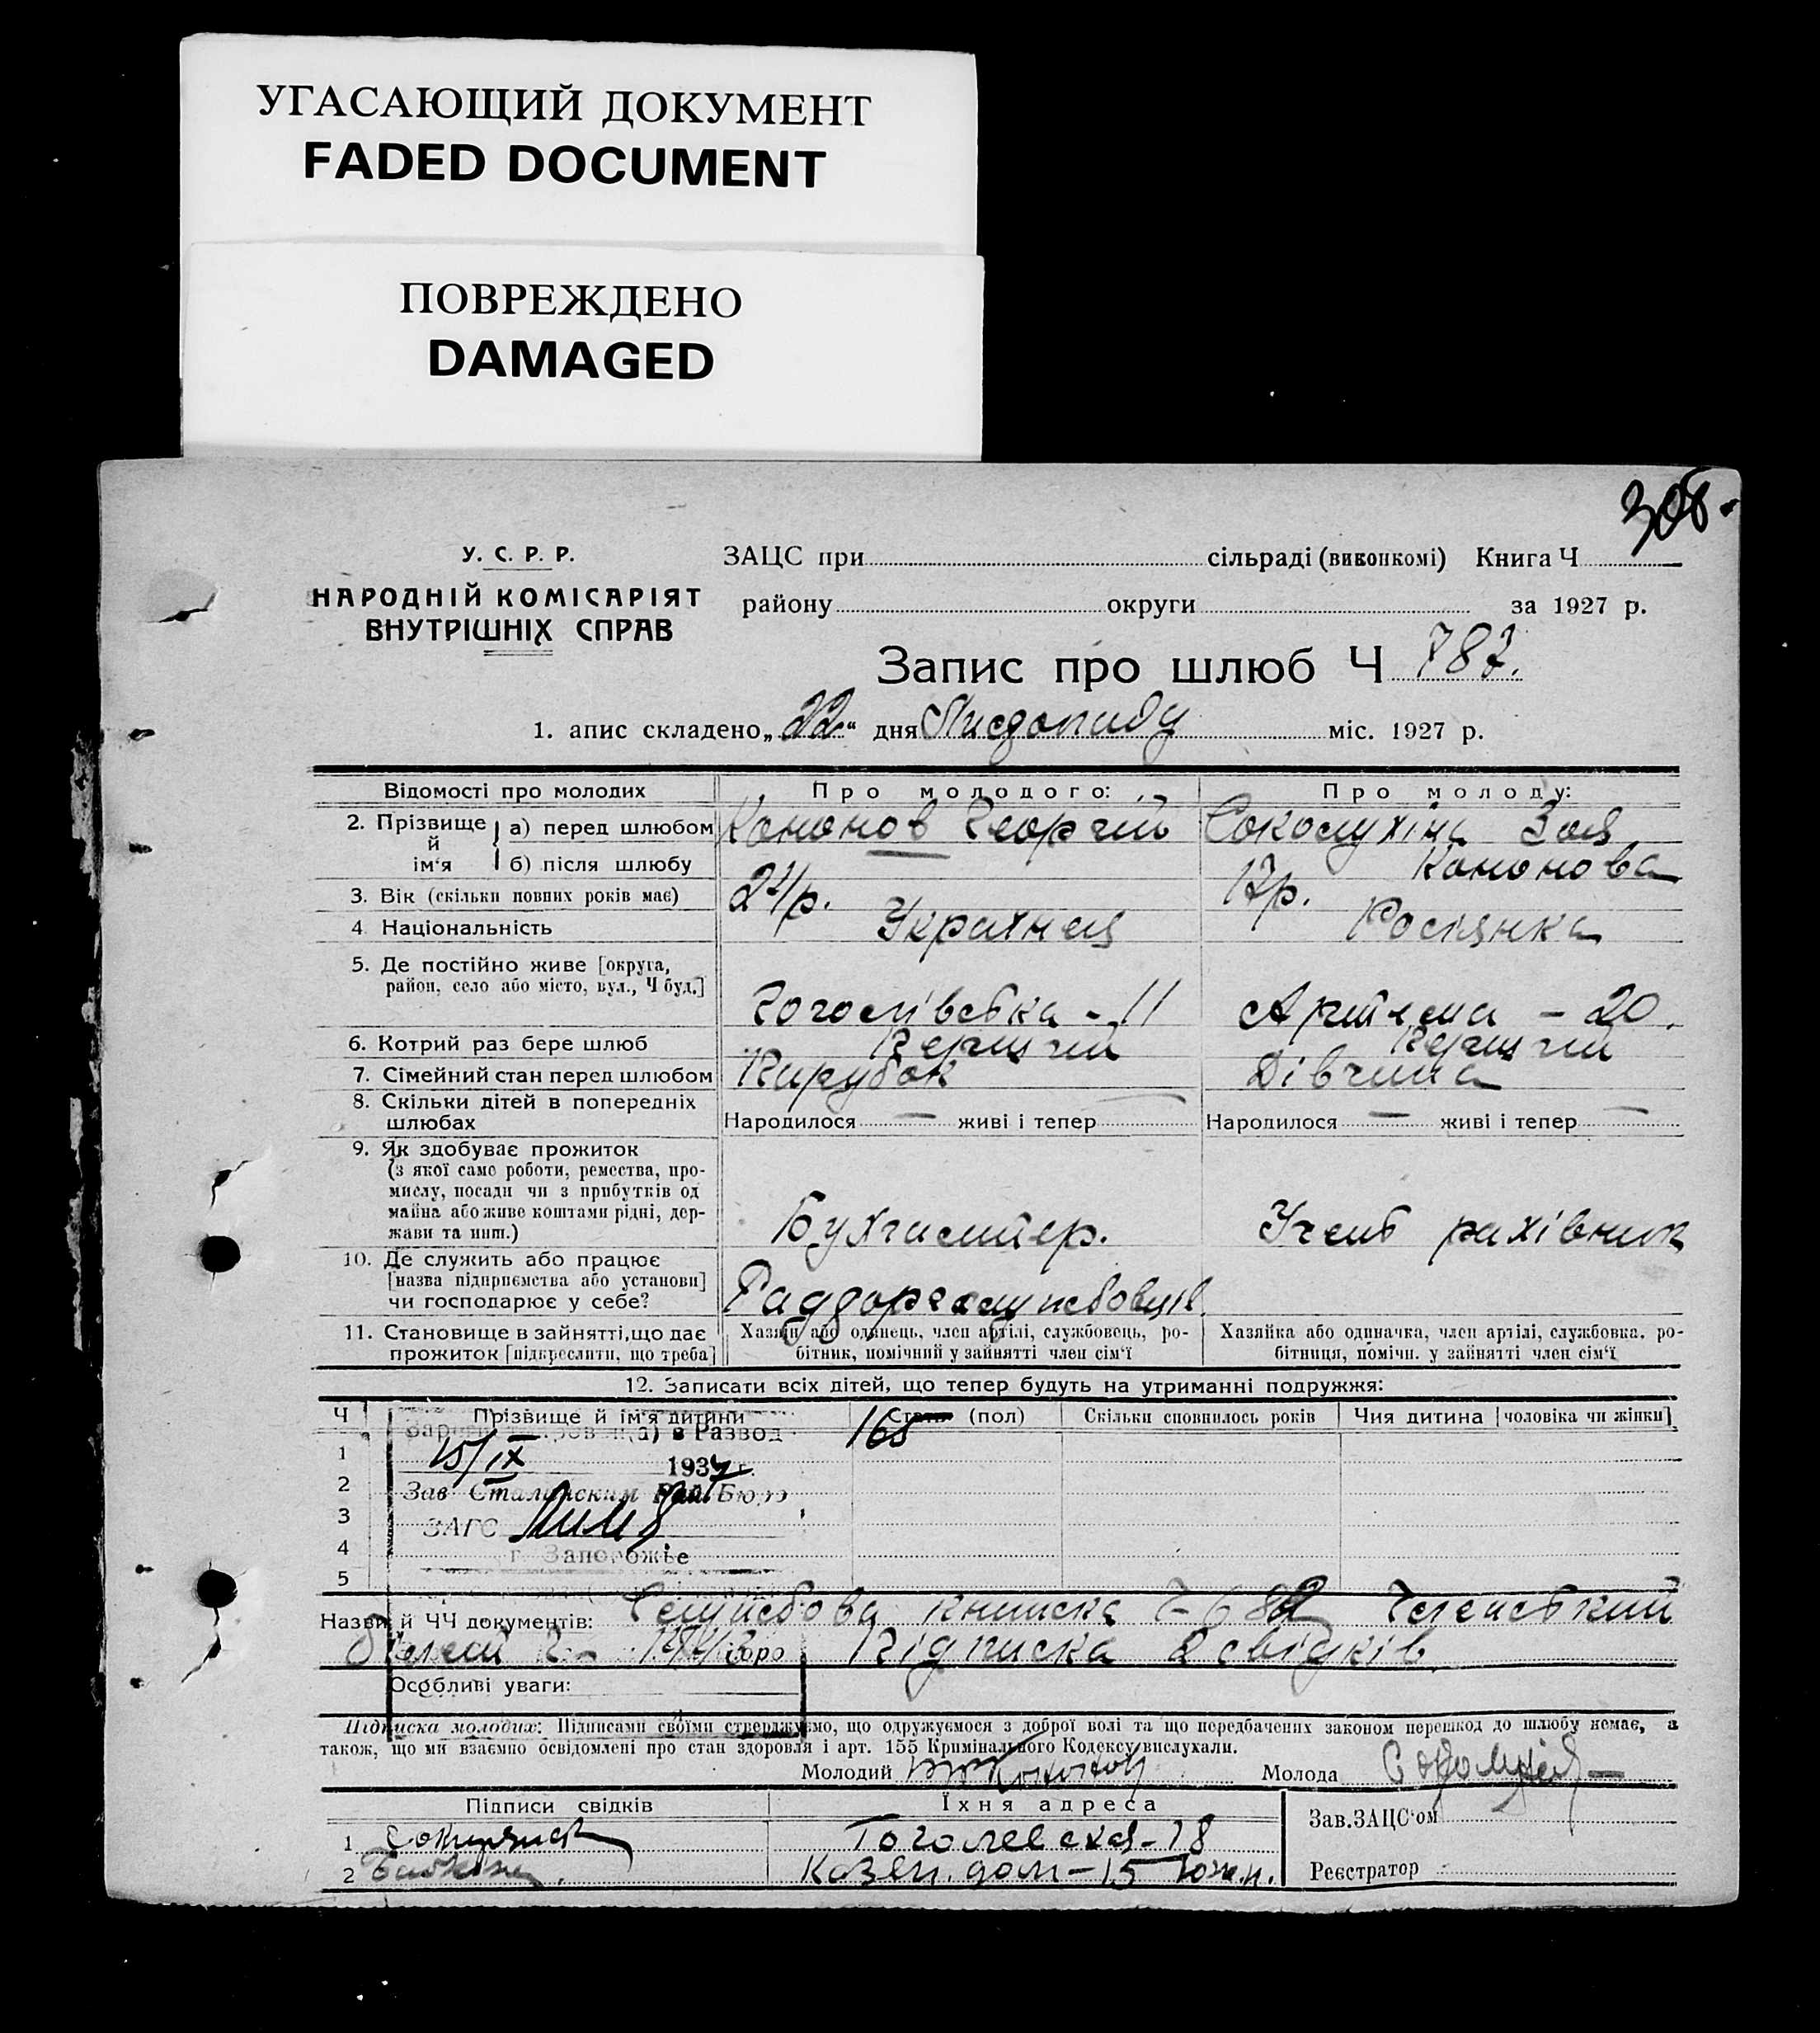 УГАСАЮЩИЙ ДОКУМЕНТ
FADED DOCUMENT
ПОВРЕЖДЕНО
DAMAGED
У. С. Р. Р.
НАРОДНІЙ КОМІСАРІЯТ
ВНУТРІШНІХ СПРАВ
ЗАЦС при сільраді (виконкомі) Книга Ч
району округи за 1927 р.
Запис про шлюб Ч 787.
1. апис складено „22“ дня Листопаду міс. 1927 р.
Відомості про молодих Про молодого: Про молоду:
2. Прізвище й ім‘я а) перед шлюбом Кононов Георгій Соколухіна Зоя
б) після шлюбу Кононова
3. Вік (скільки повних років має) р. 17р.
4. Національність Українец Росіянка
5. Де постійно живе [округа,
район, село або місто, вул., Ч буд.] Гоголівська - 11 Артема - 20.
6. Котрий раз бере шлюб Перший Перший
7. Сімейний стан перед шлюбом Парубок Дівчина
8. Скільки дітей в попередніх
шлюбах Народилося — живі і тепер — Народилося — живі і тепер —
9. Як здобуває прожиток
(з якої само роботи, ремества, про-
мислу, посади чи з прибутків од
майна або живе коштами рідні, дер-
жави та инш.) Бухгалтер. Учень рахівник
10. Де служить або працює
[назва підприємства або установи]
чи господарює у себе?
11. Становище в зайнятті, що дає
прожиток [підкреслити, що треба]
Хазяїн або одинець, член артілі, службовець, ро-
бітник, помічний у зайнятті член сім‘ї
Хазяйка або одиначка, член артілі, службовка, ро-
бітниця, помічн. у зайнятті член сім‘ї
12. Записати всіх дітей, що тепер будуть на утриманні подружжя:
Ч Прізвище й ім‘я дитини Стать (пол) Скільки сповнилось років Чия дитина [чоловіка чи жінки]
в Развод 165
1 15/IX
193 г.
2 Зав Сталинским Рай Бюро
3 ЗАГС
4 г. Запорожье
5
Назви й ЧЧ документів: Службова книжка Членський
білет Підписка 2 свідків.
Особливі уваги:
Підписка молодих: Підписами своїми стверджуємо, що одружуємося з доброї волі та що передбачених законом перешкод до шлюбу немає, а
також, що ми взаємно освідомлені про стан здоровля і арт. 155 Кримінального Кодексу вислухали.
Молодий Кононов Молода
Підписи свідків Їхня адреса Зав.ЗАЦС‘ом
1 Гоголевская-18
2 Казен. дом-15 Реєстратор